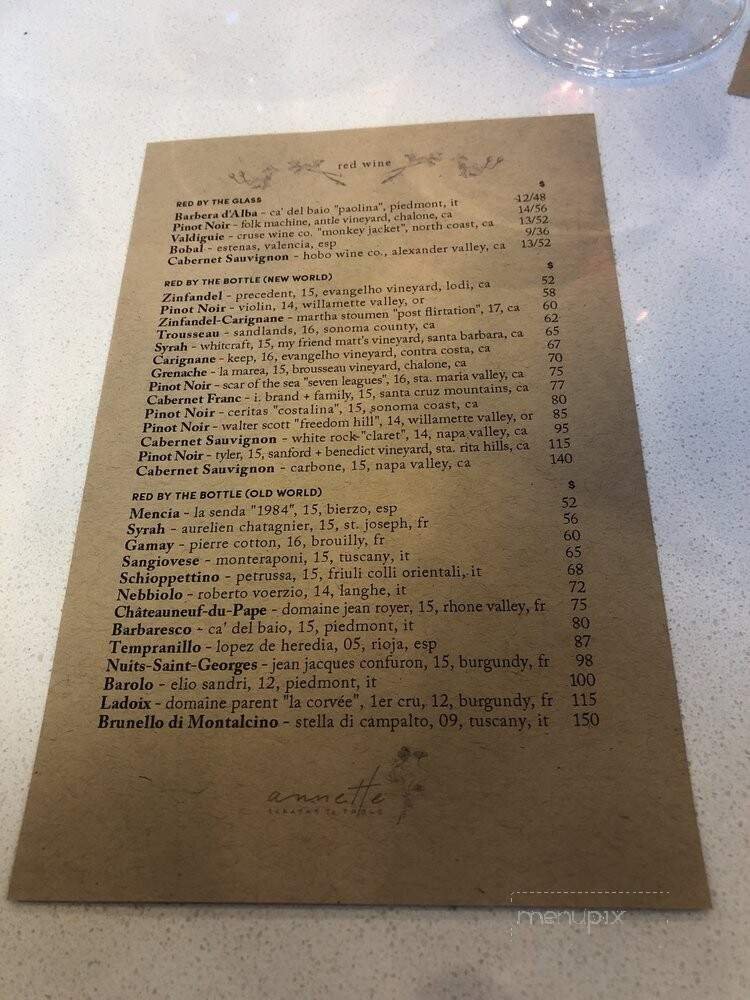 red wine
RED BY THE GLASS $
Barbera d'Alba - ca' del baio "paolina", piedmont, it 12/48
Pinot Noir - folk machine, antle vineyard, chalone, ca 14/56
Valdiguie - cruse wine co. "monkey jacket", north coast, ca 13/52
Bobal - estenas, valencia, esp 9/36
Cabernet Sauvignon - hobo wine co., alexander valley, ca 13/52
RED BY THE BOTTLE (NEW WORLD) $
Zinfandel - precedent, 15, evangelho vineyard, lodi, ca 52
Pinot Noir - violin, 14, willamette valley, or 58
Zinfandel-Carignane - martha stoumen "post flirtation", 17, ca 60
Trousseau - sandlands, 16, sonoma county, ca 62
Syrah - whitcraft, 15, my friend matt's vineyard, santa barbara, ca 65
Carignane - keep, 16, evangelho vineyard, contra costa, ca 67
Grenache - la marea, 15, brousseau vineyard, chalone, ca 70
Pinot Noir - scar of the sea "seven leagues", 16, sta. maria valley, ca 75
Cabernet Franc - i. brand + family, 15, santa cruz mountains, ca 77
Pinot Noir - ceritas "costalina", 15, sonoma coast, ca 80
Pinot Noir - walter scott "freedom hill", 14, willamette valley, or 85
Cabernet Sauvignon - white rock "claret", 14, napa valley, ca 95
Pinot Noir - tyler, 15, sanford + benedict vineyard, sta. rita hills, ca 115
Cabernet Sauvignon - carbone, 15, napa valley, ca 140
RED BY THE BOTTLE (OLD WORLD) $
Mencia - la senda "1984", 15, bierzo, esp 52
Syrah - aurelien chatagnier, 15, st. joseph, fr 56
Gamay - pierre cotton, 16, brouilly, fr 60
Sangiovese - monteraponi, 15, tuscany, it 65
Schioppettino - petrussa, 15, friuli colli orientali, it 68
Nebbiolo - roberto voerzio, 14, langhe, it 72
Châteauneuf-du-Pape - domaine jean royer, 15, rhone valley, fr 75
Barbaresco - ca' del baio, 15, piedmont, it 80
Tempranillo - lopez de heredia, 05, rioja, esp 87
Nuits-Saint-Georges - jean jacques confuron, 15, burgundy, fr 98
Barolo - elio sandri, 12, piedmont, it 100
Ladoix - domaine parent "la corvée", 1er cru, 12, burgundy, fr 115
Brunello di Montalcino - stella di campalto, 09, tuscany, it 150
annette
menupix